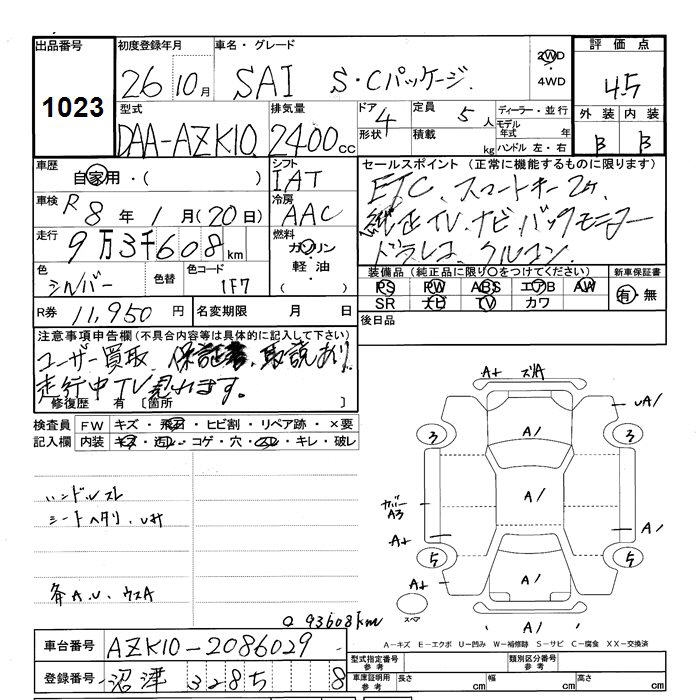 出品番号
1023
初度登録年月
26 10月
車名・グレード
SAI S・Cパッケージ
2WD
4WD
評価点
4.5
外装 内装
B B
型式
DAA-AZK10
排気量
2400cc
ドア 4
形状
定員 5人
積載 kg
ディーラー・並行
モデル年式 年
ハンドル 左・右
車歴
自家用・( )
シフト
IAT
車検
R8年1月(20日)
冷房
AAC
走行
9万3千608km
燃料
ガソリン
軽油
( )
色
シルバー
色替
色コード
1F7
R券 11,950円
名変期限 月 日
セールスポイント(正常に機能するものに限ります)
ETC、スマートキー2ヶ
純正TV、ナビ、バックモニター
ドラレコ、クルコン
装備品(純正品に限り○をつけてください)
PS PW ABS エアB AW
SR ナビ TV カワ
新車保証書
有・無
後日品
注意事項申告欄(不具合内容等は具体的に記入して下さい)
ユーザー買取、保証書、取説あり
走行中TV見れます。
修復歴 有[箇所 ]
検査員記入欄
FW キズ・飛石・ヒビ割・リペア跡・×要
内装 キズ・汚れ・コゲ・穴・スレ・キレ・破レ
ハンドルスレ
シートヘタリ、
各A.U、ウスA
Q 93608km
A+ ズレA
UA1
3 A1 3
A1
カバーA3
A1
A+
5 A1 5
A+
スペア
A1
A-キズ E-エクボ U-凹み W-補修跡 S-サビ C-腐食 XX-交換済
車台番号 AZK10-2086029
登録番号 沼津 3285 8
型式指定番号 参考
類別区分番号 参考
車庫証明用 参考
長さ cm 幅 cm 高さ cm